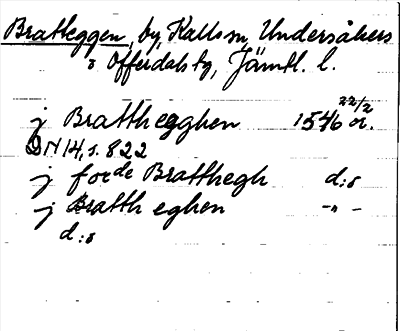 Bratteggen, by, Kalls sn, Undersåkers
o Offerdals tg, Jämtl. l.
j Bratthegghen 1546 22/2 or.
DN 14, s. 822
j forde Bratthegh d:o
j Bratth eghen -"-
d:o